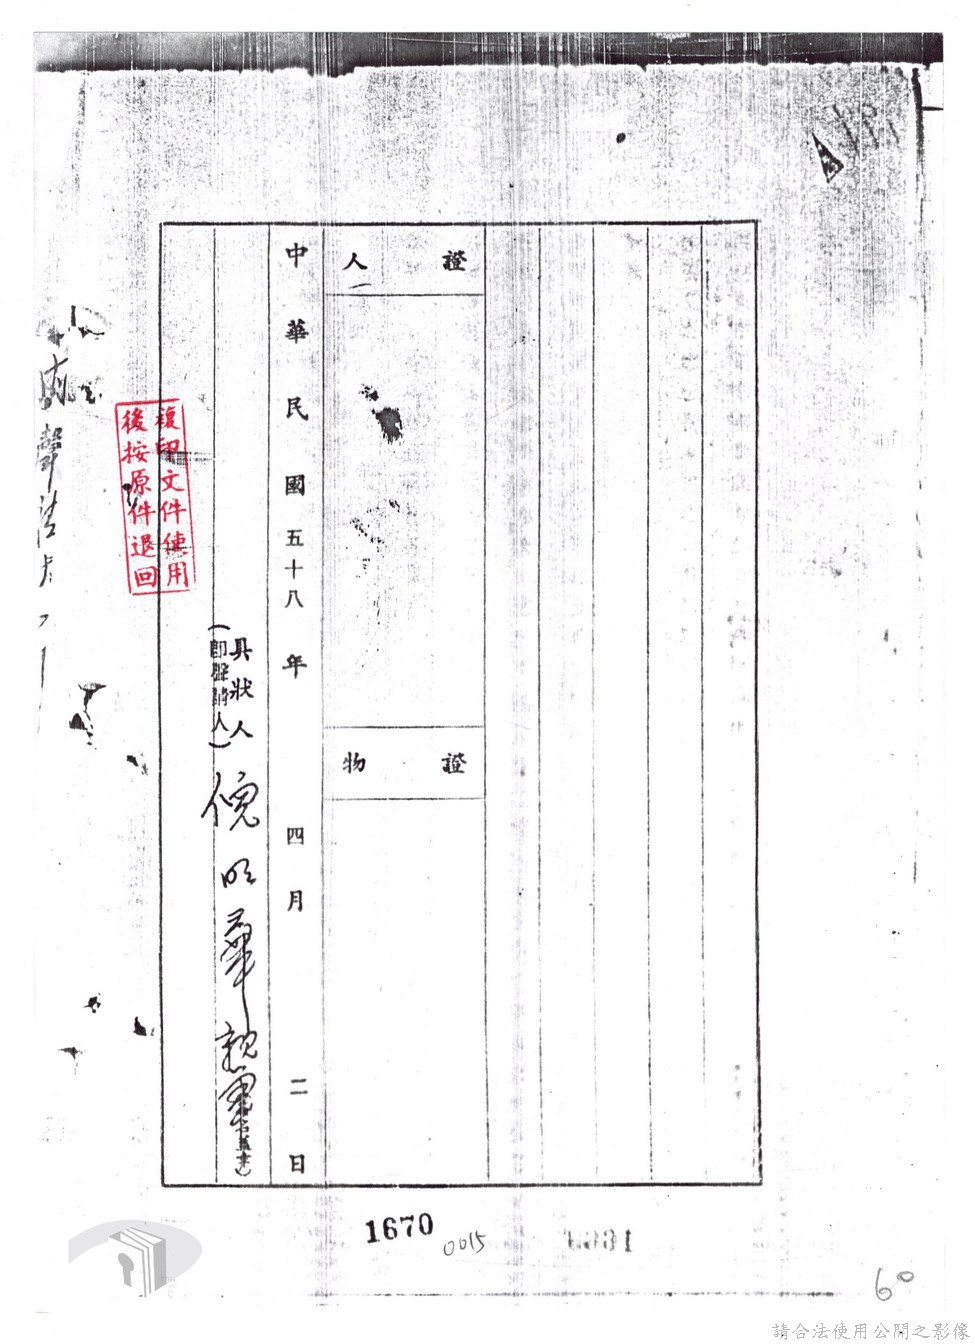 證人
證物
中華民國五十八年四月二日
具狀人
(即聲請人)
倪明華親筆
複印文件使用
後按原件退回
聲請
1670
0015
60
請合法使用公開之影像